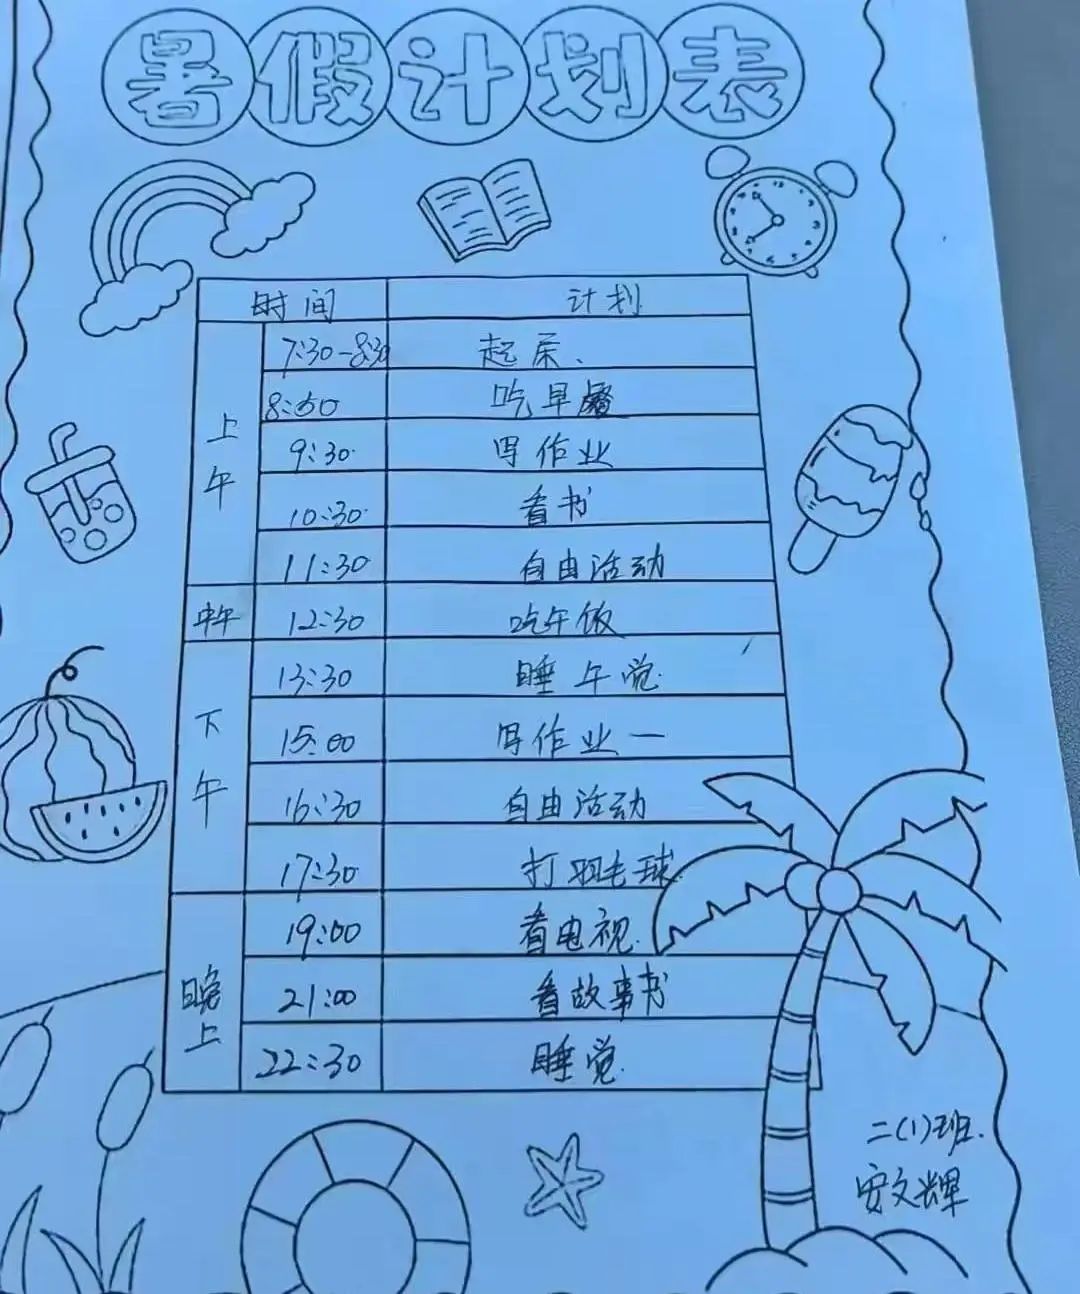 暑假计划表
时间 计划
上午 7:30-8:30 起床、
8:50 吃早餐
9:30 写作业
10:30 看书
11:30 自由活动
中午 12:30 吃午饭
下午 13:30 睡午觉
15:00 写作业一
16:30 自由活动
17:30 打羽毛球
晚上 19:00 看电视
21:00 看故事书
22:30 睡觉
二(1)班.
安文辉